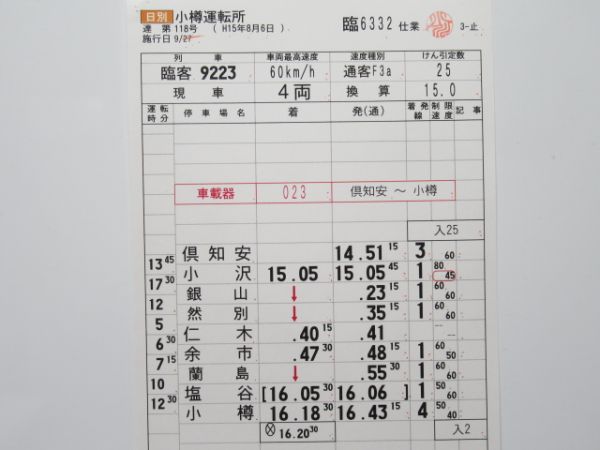 日別 小樽運転所 臨6332 仕業 3-止
達 第 118号 ( H15年8月6日 )
施行日 9/27
列 車 車両最高速度 速度種別 けん引定数
臨客 9223 60km/h 通客F3a 25
現 車 4両 換 算 15.0
運転時分 停車場名 着 発(通) 着発線 制限速度 記事
車載器 023 倶知安 ~ 小樽
入25
倶知安 14.51 15 3 60
13 45
小 沢 15.05 15.05 45 1 80 45
17 30
銀 山 ↓ .23 15 1 60 60
12
然 別 ↓ .35 15 1 60 60
5
仁 木 .40 15 .41
6 30
余 市 .47 30 .48 15 1 60 50
7 15
蘭 島 ↓ .55 30 1 60
10
塩 谷 [16.05 30 16.06 ] 1 50 60
12 30
小 樽 16.18 30 16.43 15 4 50 40
⊗ 16.20 30 入2